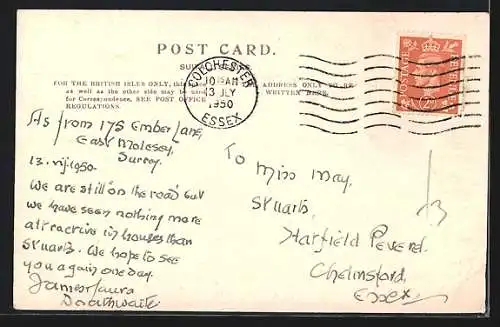 POST CARD.
FOR THE BRITISH ISLES ONLY, this
as well as the other side may be used
for Correspondence. SEE POST OFFICE
REGULATIONS
ADDRESS ONLY TO BE
WRITTEN HERE.
COLCHESTER
10 15 AM
13 JLY
1950
ESSEX
POSTAGE
REVENUE
As from 175 Ember Lane,
East Molesey,
Surrey.
13. vij. 1950.
We are still on the road but
we have seen nothing more
attractive in houses than
Stuarts. We hope to see
you again one day.
James & Laura
To Miss May,
Stuarts,
Hatfield Peverel.
Chelmsford,
Essex